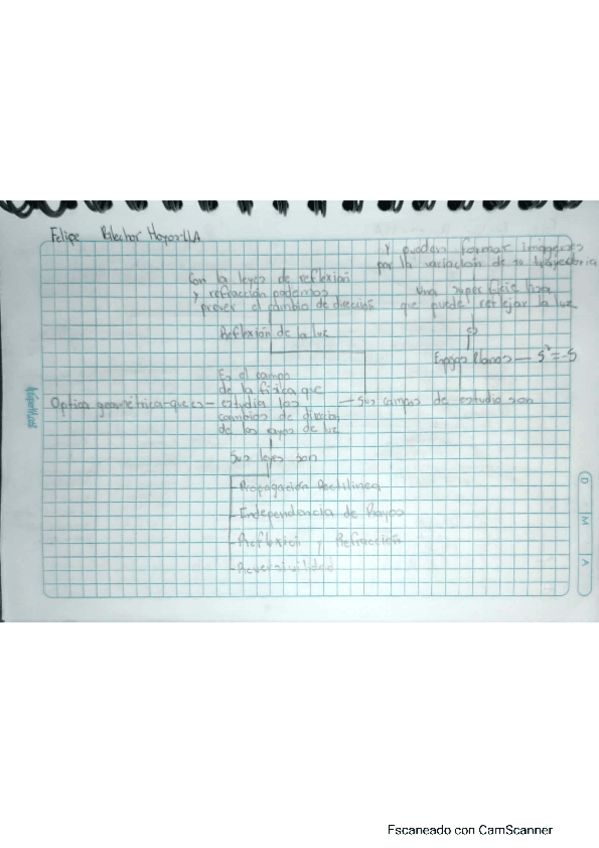 Felipe Hoyos 11A
y pueden formar imagenes
por la variación de su trayectoria
Con la leyes de reflexion
y refracción podemos
prever el cambio de direccion
Una superficie lisa
que puede reflejar la luz
Reflexión de la luz
Espejos Planos — S'=-S
Es el campo
de la física que
Optica geometrica-que es- estudia los
— Sus campos de estudio son
cambios de direccion
de los rayos de luz
Sus leyes son
- Propagación Rectilinea
- Independencia de Rayos
- Reflexión y Refracción
- Reversivilidad
D
M
A
Escaneado con CamScanner